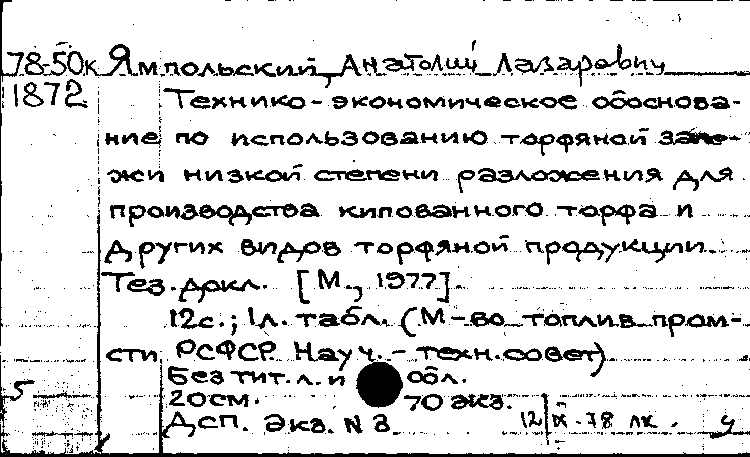 78-50к Ямпольский, Анатолий Лазаревич
1872 Технико-экономическое обоснова-
ние по использованию торфяной зале-
жи низкой степени разложения для
производства кипованного торфа и
других видов торфяной продукции.
Тез. докл. [М., 1977].
12с.; 1л. табл. (М-во топлив. пром-
сти РСФСР. Науч.-техн. совет)
Без тит. л. и обл.
5 20см. 70 экз.
Дсп. Экз. N 3. 12 IX-78 лк. у